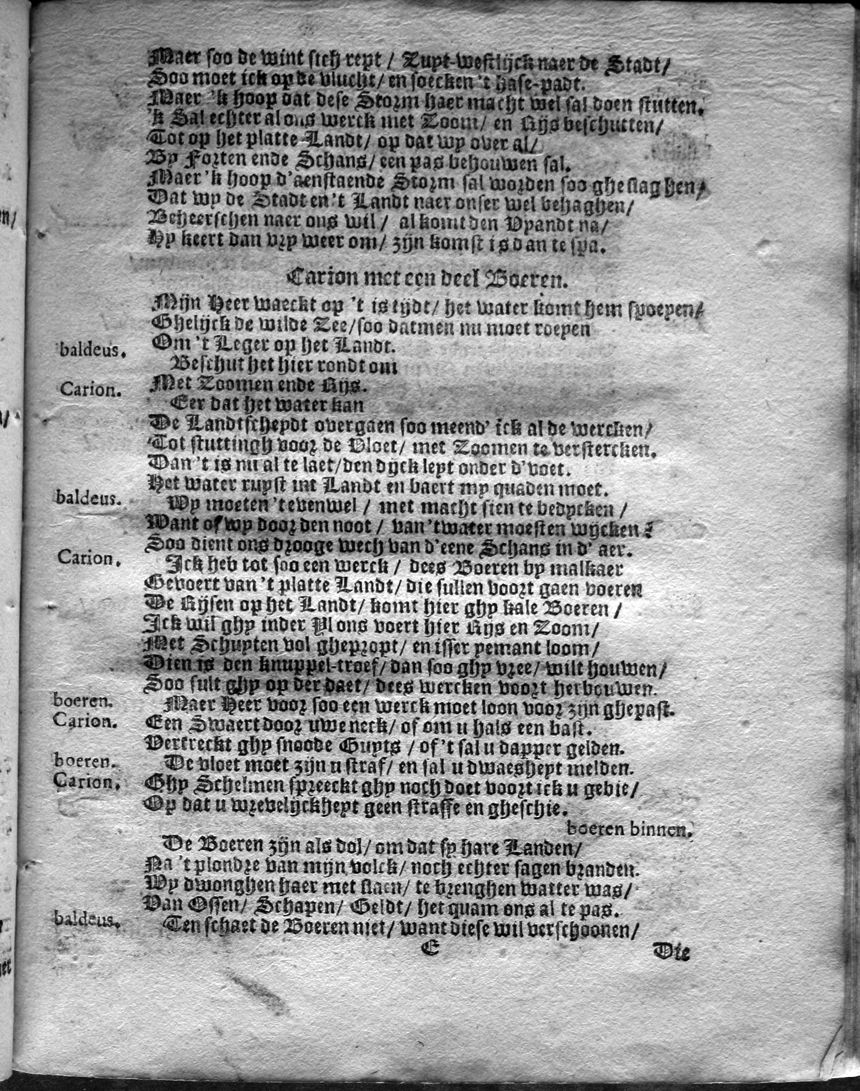 Maer soo de wint sich rept / Zuyt-westlijck naer de Stadt/
Soo moet ick op de vlucht/ en soecken 't hase-padt.
Maer 'k hoop dat dese Storm haer macht wel sal doen stutten.
'k Sal echter al ons werck met Zoom/ en Rijs beschutten/
Tot op het platte Landt/ op dat wy over al/
By Forten ende Schans/ een pas behouwen sal.
Maer 'k hoop d'aenstaende Storm sal worden soo gheslaghen/
Dat wy de Stadt en 't Landt naer onser wel behaghen/
Beheerschen naer ons wil / al komt den Vyandt na/
Hy keert dan vry weer om/ zijn komst is dan te spa.
Carion met een deel Boeren.
Mijn Heer waeckt op 't is tydt/ het water komt hem spoeyen/
Ghelijck de wilde Zee/soo datmen nu moet roepen
Om 't Leger op het Landt.
baldeus. Beschut het hier rondt om
Carion. Met Zoomen ende Rijs.
Eer dat het water kan
De Landtscheydt overgaen soo meend' ick al de wercken/
Tot stuttingh voor de Vloet/ met Zoomen te verstercken.
Dan 't is nu al te laet/den dijck leyt onder d'voet.
Het water ruyst int Landt en baert my quaden moet.
baldeus. Wy moeten 't evenwel / met macht sien te bedycken /
Want of wy door den noot / van 't water moesten wijcken ?
Soo dient ons drooge wech van d'eene Schans in d' aer.
Carion. Ick heb tot soo een werck / dees Boeren by malkaer
Gevoert van 't platte Landt/ die sullen voort gaen voeren
De Rijsen op het Landt/ komt hier ghy kale Boeren /
Ick wil ghy inder Yl ons voert hier Rijs en Zoom/
Met Schuyten vol ghepropt/ en isser yemant loom/
Dien is den knuppel-troef/ dan soo ghy vree/ wilt houwen/
Soo sult ghy op der daet/ dees wercken voort herbouwen.
boeren. Maer Heer voor soo een werck moet loon voor zijn ghepast.
Carion. Een Swaert door uwe neck/ of om u hals een bast.
Vertreckt ghy snoode Guyts / of 't sal u dapper gelden.
boeren. De vloet moet zijn u straf/ en sal u dwaesheyt melden.
Carion. Ghy Schelmen spreeckt ghy noch doet voort ick u gebie/
Op dat u wrevelijckheyt geen straffe en gheschie.
boeren binnen.
De Boeren zijn als dol/ om dat sy hare Landen/
Na 't plondre van mijn volck/ noch echter sagen branden.
Wy dwonghen haer met slaen/ te brenghen watter was/
Van Ossen/ Schapen/ Geldt/ het quam ons al te pas.
baldeus. Ten schaet de Boeren niet/ want diese wil verschoonen/
E Die